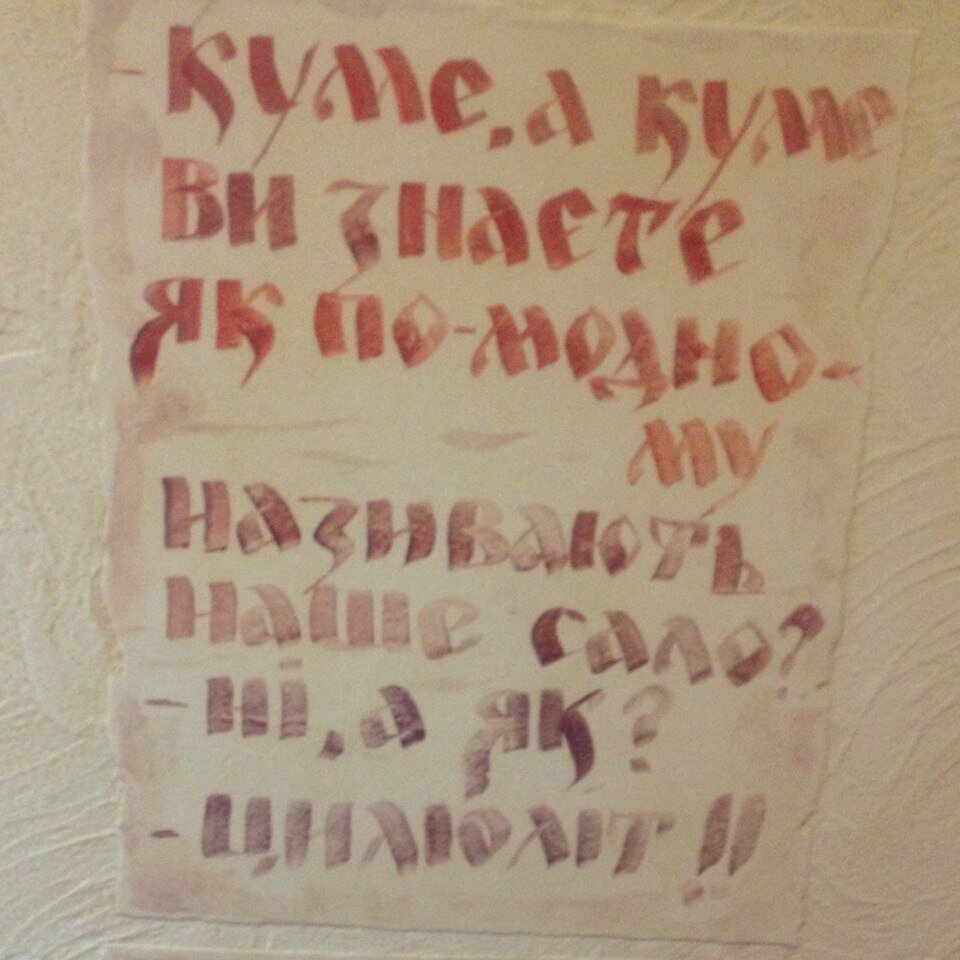 - Куме, а куме
ви знаєте
як по-модно-
му
називають
наше сало?
- Ні, а як?
- Цилюліт!!